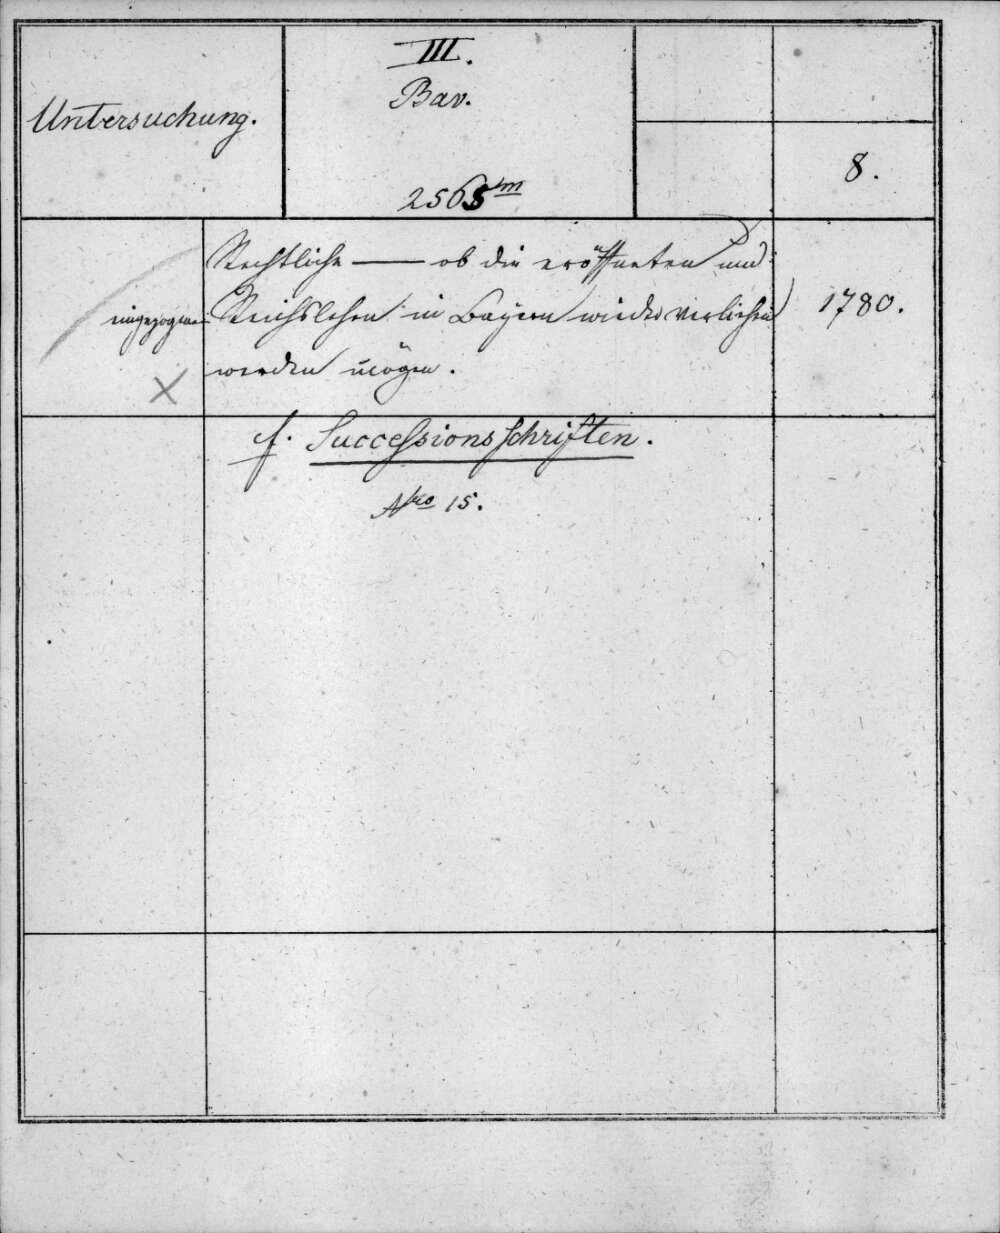 Untersuchung.
III.
Bav.
2565 m
8.
Rechtliche — ob die eröffneten und
eingezogenen Reichslehen in Bayern wieder verliehen
werden mögen.
1780.
f. Successionsschriften.
Nro 15.